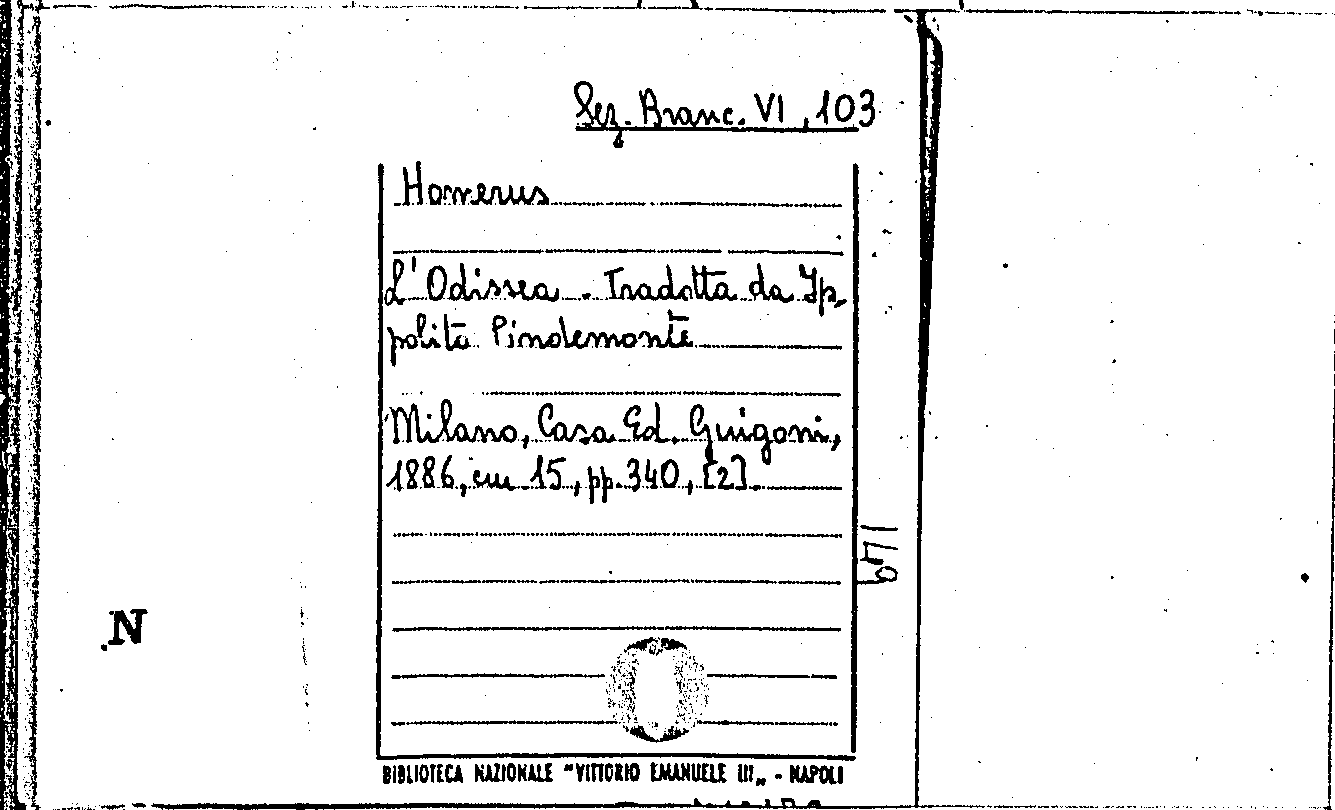 Sez. Branc. VI, 103
Homerus
L'Odissea. Tradotta da Ip-
polito Pindemonte
Milano, Casa Ed. Guigoni,
1886, cm 15, pp. 340, [2].
149
N
BIBLIOTECA NAZIONALE "VITTORIO EMANUELE III„ - NAPOLI